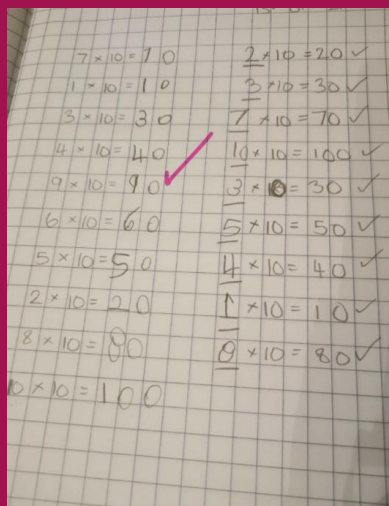 7 × 10 = 70
1 × 10 = 10
3 × 10 = 30
4 × 10 = 40
9 × 10 = 90
6 × 10 = 60
5 × 10 = 50
2 × 10 = 20
8 × 10 = 80
10 × 10 = 100
2 × 10 = 20 ✓
3 × 10 = 30 ✓
7 × 10 = 70 ✓
10 × 10 = 100 ✓
3 × 10 = 30 ✓
5 × 10 = 50 ✓
4 × 10 = 40 ✓
1 × 10 = 10 ✓
8 × 10 = 80 ✓